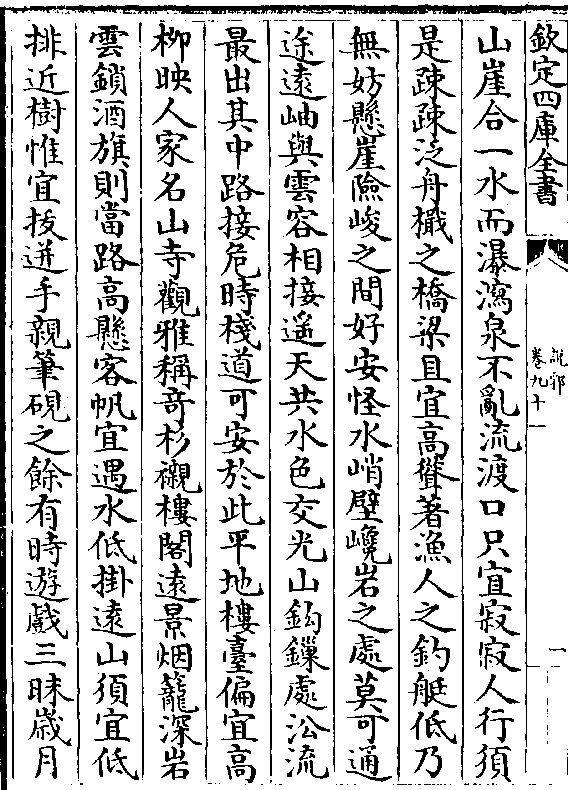 欽定四庫全書
說郛
卷九十一
一
山崖合一水而瀑瀉泉不亂流渡口只宜寂寂人行須
是疎疎泛舟檝之橋梁且宜高聳著漁人之釣艇低乃
無妨懸崖險峻之間好安怪水峭壁巉岩之處莫可通
途遠岫與雲容相接遥天共水色交光山鈎鏁處沿流
最出其中路接危時棧道可安於此平地樓臺偏宜高
柳映人家名山寺觀雅稱竒杉襯樓閣遠景烟籠深岩
雲鎖酒旗則當路高懸客帆宜遇水低掛遠山須宜低
排近樹惟宜拔迸手親筆硯之餘有時遊戲三昧歲月